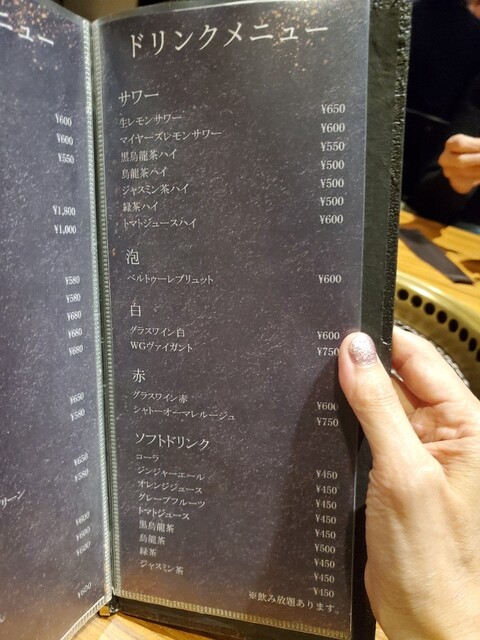 ニュー
¥600
¥600
¥550
¥1,800
¥1,000
¥580
¥580
¥680
¥680
¥680
¥650
¥580
¥650
¥580
リーン
¥600
¥600
¥600
¥600
ドリンクメニュー
サワー
生レモンサワー ¥650
マイヤーズレモンサワー ¥600
黒烏龍茶ハイ ¥550
烏龍茶ハイ ¥500
ジャスミン茶ハイ ¥500
緑茶ハイ ¥500
トマトジュースハイ ¥600
泡
ベルトゥーレブリュット ¥600
白
グラスワイン白 ¥600
WGヴァイガント ¥750
赤
グラスワイン赤 ¥600
シャトーオーマレルージュ ¥750
ソフトドリンク
コーラ ¥450
ジンジャーエール ¥450
オレンジジュース ¥450
グレープフルーツ ¥450
トマトジュース ¥450
黒烏龍茶 ¥500
烏龍茶 ¥450
緑茶 ¥450
ジャスミン茶 ¥450
※飲み放題あります。